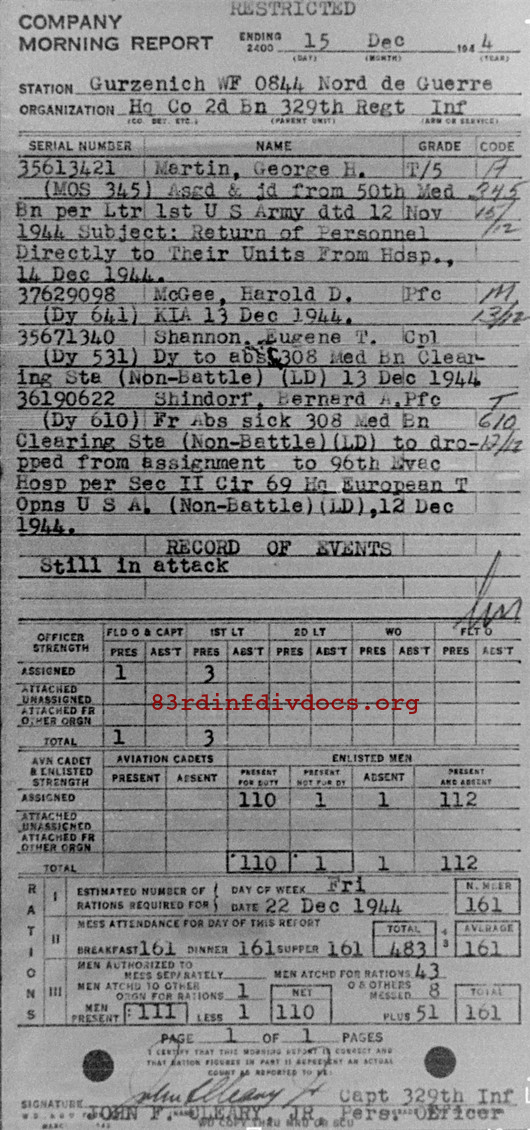 RESTRICTED
COMPANY
MORNING REPORT
ENDING 2400 15 Dec 194 4
(DAY) (MONTH) (YEAR)
STATION Gurzenich WF 0844 Nord de Guerre
ORGANIZATION Hq Co 2d Bn 329th Regt Inf
(CO. DET. ETC.) (PARENT UNIT) (ARM OR SERVICE)
SERIAL NUMBER NAME GRADE CODE
35613421 Martin, George H. T/5 A
(MOS 345) Asgd & jd from 50th Med 345
Bn per Ltr 1st U S Army dtd 12 Nov 15/12
1944 Subject: Return of Personnel
Directly to Their Units From Hosp.,
14 Dec 1944.
37629098 McGee, Harold D. Pfc M
(Dy 641) KIA 13 Dec 1944. 13/12
35671340 Shannon, Eugene T. Cpl
(Dy 531) Dy to abs 308 Med Bn Clear-
ing Sta (Non-Battle) (LD) 13 Dec 1944
36190622 Shindorf, Bernard A. Pfc T
(Dy 610) Fr Abs sick 308 Med Bn 610
Clearing Sta (Non-Battle)(LD) to dro- 12/12
pped from assignment to 96th Evac
Hosp per Sec II Cir 69 Hq European T
Opns U S A. (Non-Battle)(LD),12 Dec
1944.
RECORD OF EVENTS
Still in attack
OFFICER STRENGTH FLD O & CAPT 1ST LT 2D LT WO FLT O
PRES ABS'T PRES ABS'T PRES ABS'T PRES ABS'T PRES ABS'T
ASSIGNED 1 3
ATTACHED UNASSIGNED
83rdinfdivdocs.org
ATTACHED FR OTHER ORGN
TOTAL 1 3
AVN CADET & ENLISTED STRENGTH AVIATION CADETS ENLISTED MEN
PRESENT ABSENT PRESENT FOR DUTY PRESENT NOT FOR DY ABSENT PRESENT AND ABSENT
ASSIGNED 110 1 1 112
ATTACHED UNASSIGNED
ATTACHED FR OTHER ORGN
TOTAL 110 1 1 112
RATIONS
I ESTIMATED NUMBER OF RATIONS REQUIRED FOR DAY OF WEEK Fri NUMBER
DATE 22 Dec 1944 161
II MESS ATTENDANCE FOR DAY OF THIS REPORT TOTAL AVERAGE
BREAKFAST 161 DINNER 161 SUPPER 161 483 ÷ 3 161
III MEN AUTHORIZED TO MESS SEPARATELY MEN ATCHD FOR RATIONS 43
MEN ATCHD TO OTHER ORGN FOR RATIONS 1 NET O & OTHERS MESSED 8 TOTAL
MEN PRESENT 111 LESS 1 110 PLUS 51 161
PAGE 1 OF 1 PAGES
I CERTIFY THAT THIS MORNING REPORT IS CORRECT AND
THAT RATION FIGURES IN PART III REPRESENT AN ACTUAL
COUNT AS REPORTED TO ME:
SIGNATURE John F Cleary Jr Capt 329th Inf
JOHN F. CLEARY, JR. Pers. Officer